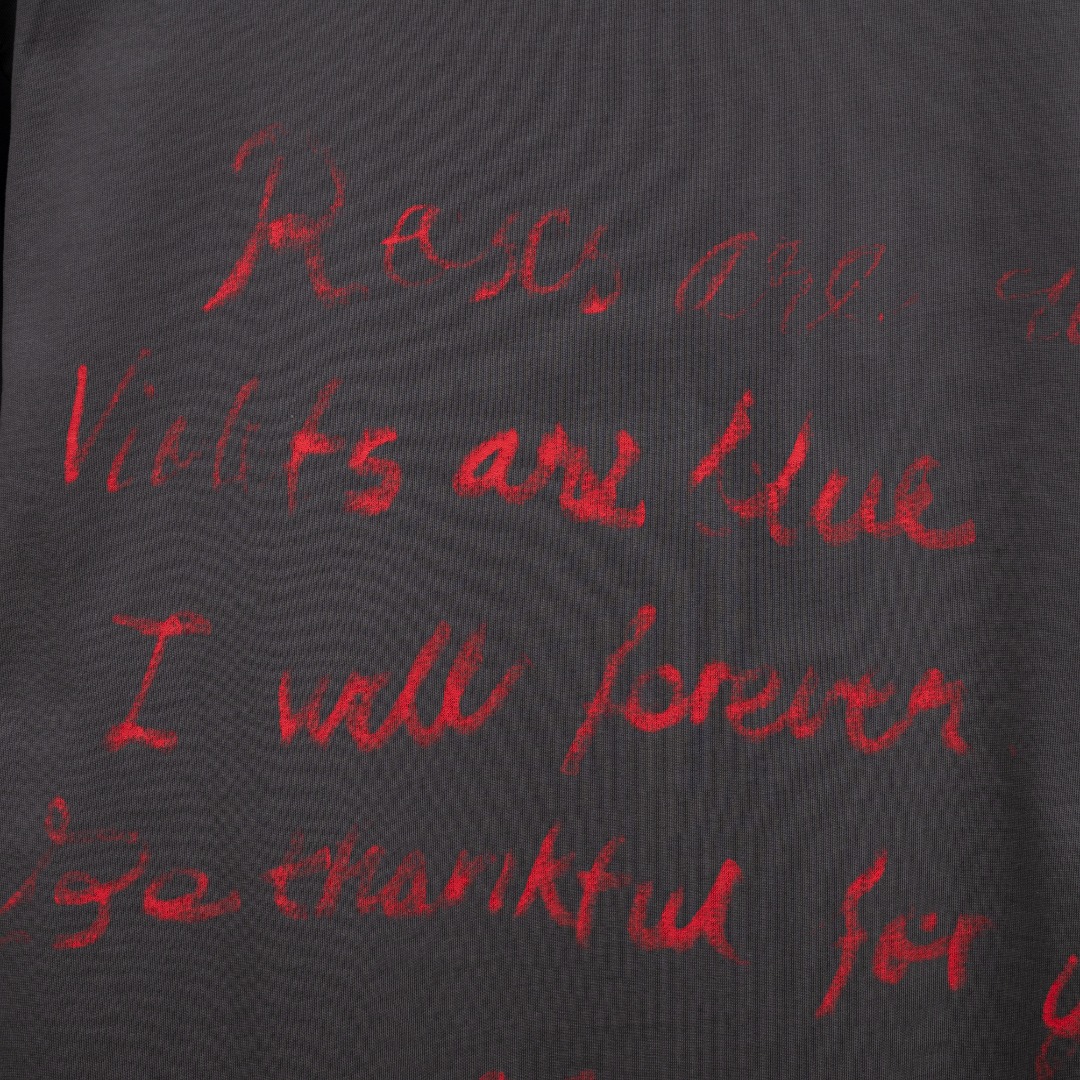 Roses are
Violets are blue
I will forever
be thankful for